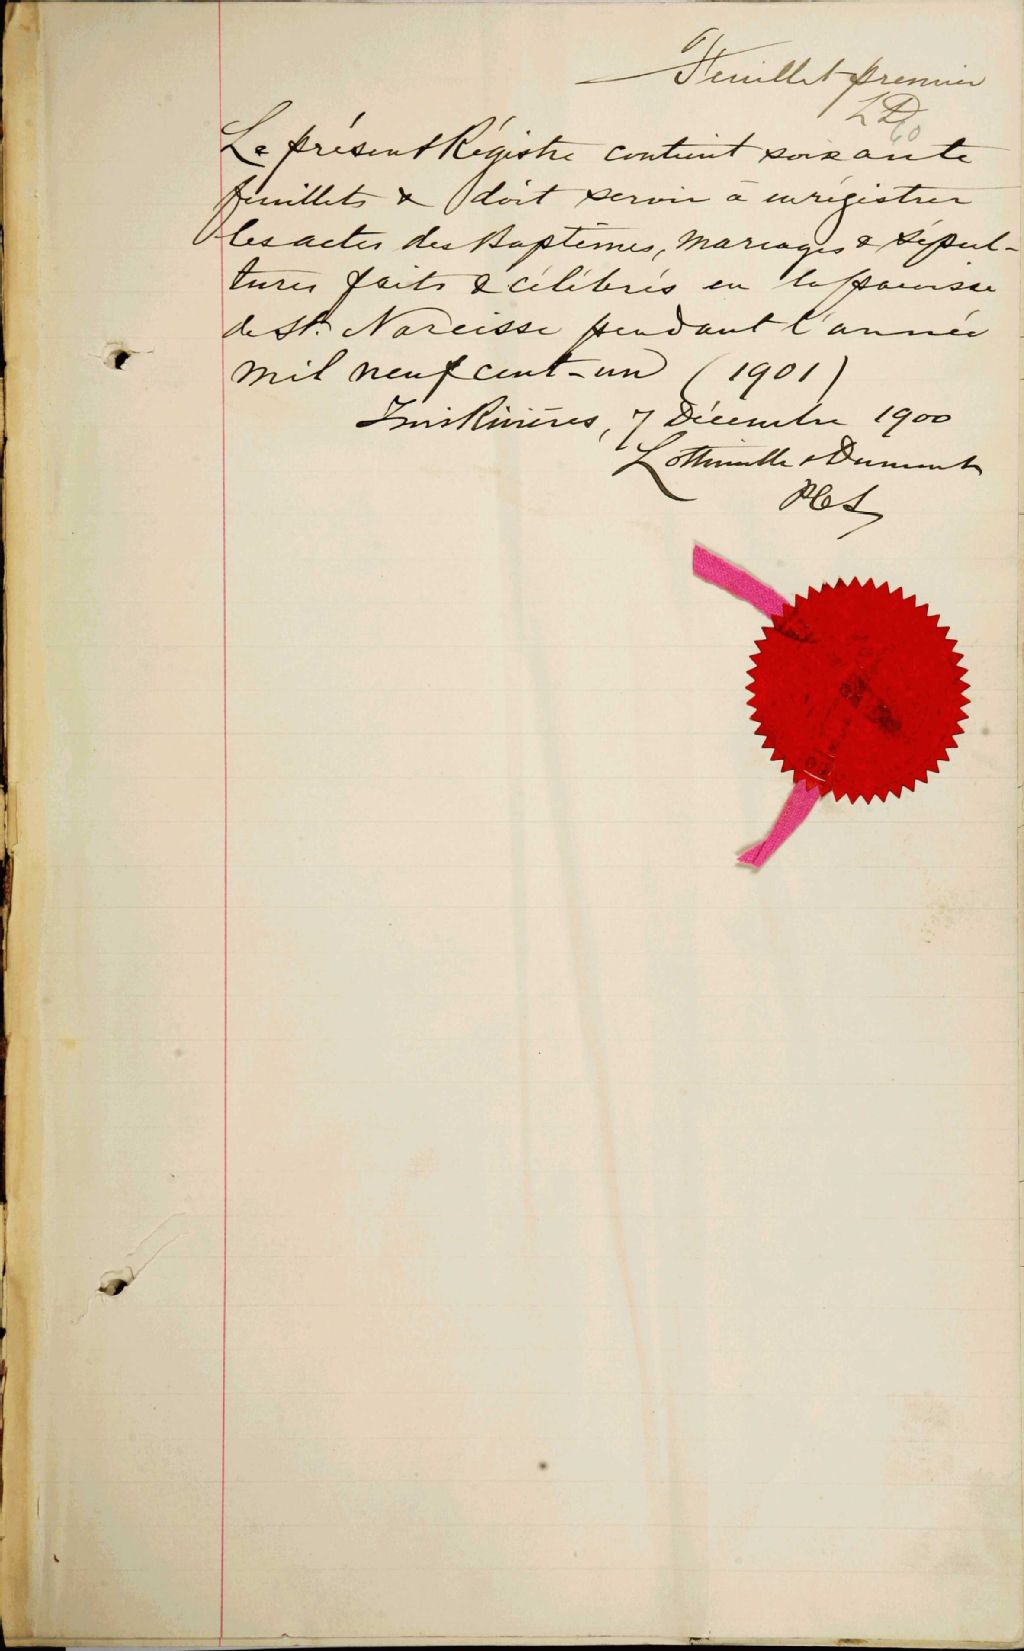 Feuillet premier
L D
60
Le présent Régistre contient soixante
feuillets & doit servir à enrégistrer
les actes des Baptêmes, mariages & sépul-
tures faits & célébrés en la paroisse
de St. Narcisse pendant l'année
mil neuf cent-un (1901)
Trois Rivières, 7 Décembre 1900
Lottinville & Dumont
PCS